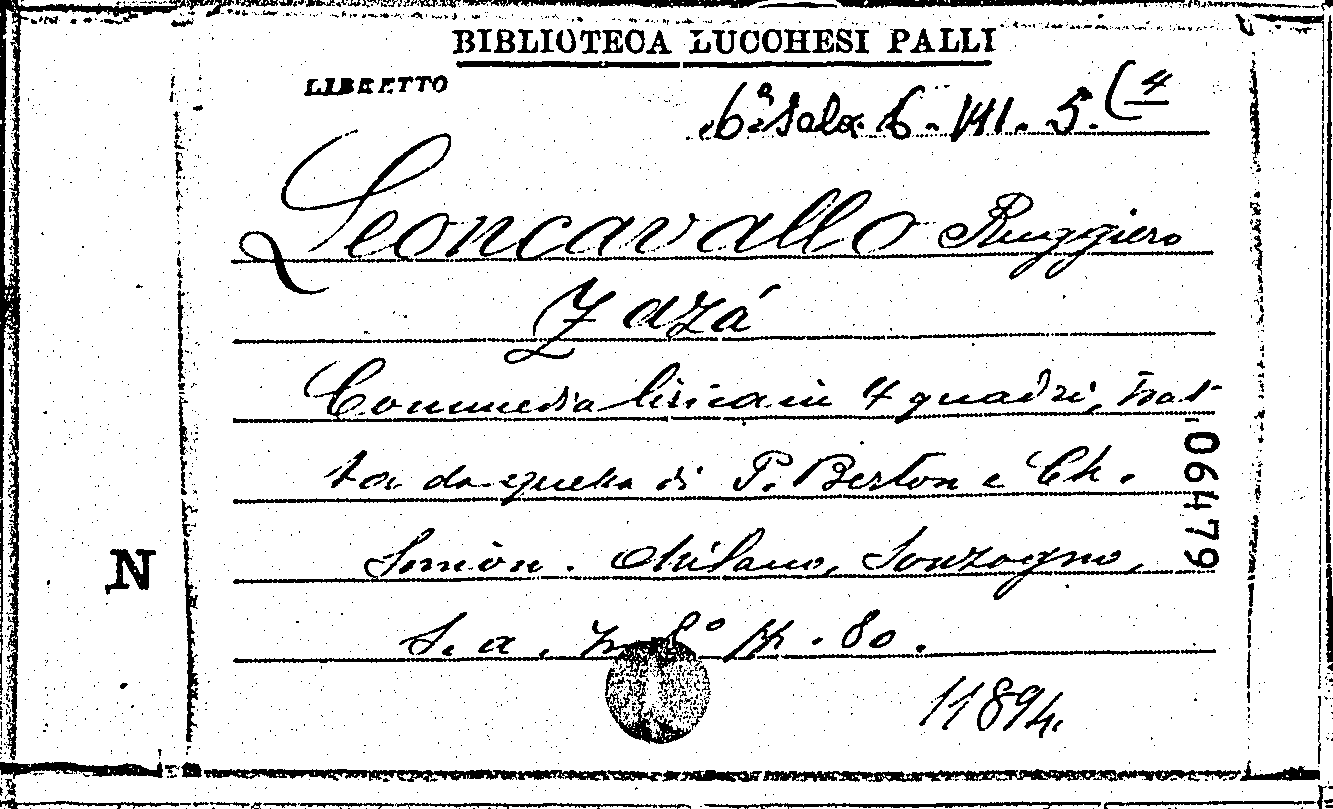 BIBLIOTECA LUCCHESI PALLI
LIBRETTO
6ª Sala 6. VII. 5.(4
Leoncavallo Ruggiero
Zazá
Commedia lirica in 4 quadri, trat
ta da quella di P. Berton e Ch.
Simon. Milano, Sonzogno,
S. a. in 8° pp. 80.
11894.
06479
N